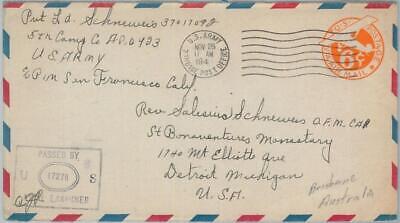 Pvt L.J. Schneweis 37017092
5th Camp Co APO 923
U.S. ARMY
% P.M San Francisco Calif
U.S. ARMY
NOV 25
11 AM
194
POSTAL SERVICE
U.S. POSTAGE
6¢
AIR MAIL
Rev. Salesius Schneweis O.F.M. CAP.
St Bonaventures Monastery
1740 Mt Elliott Ave
Detroit Michigan
U.S.A.
PASSED BY
U 17278 S
ARMY EXAMINER
Brisbane
Australia